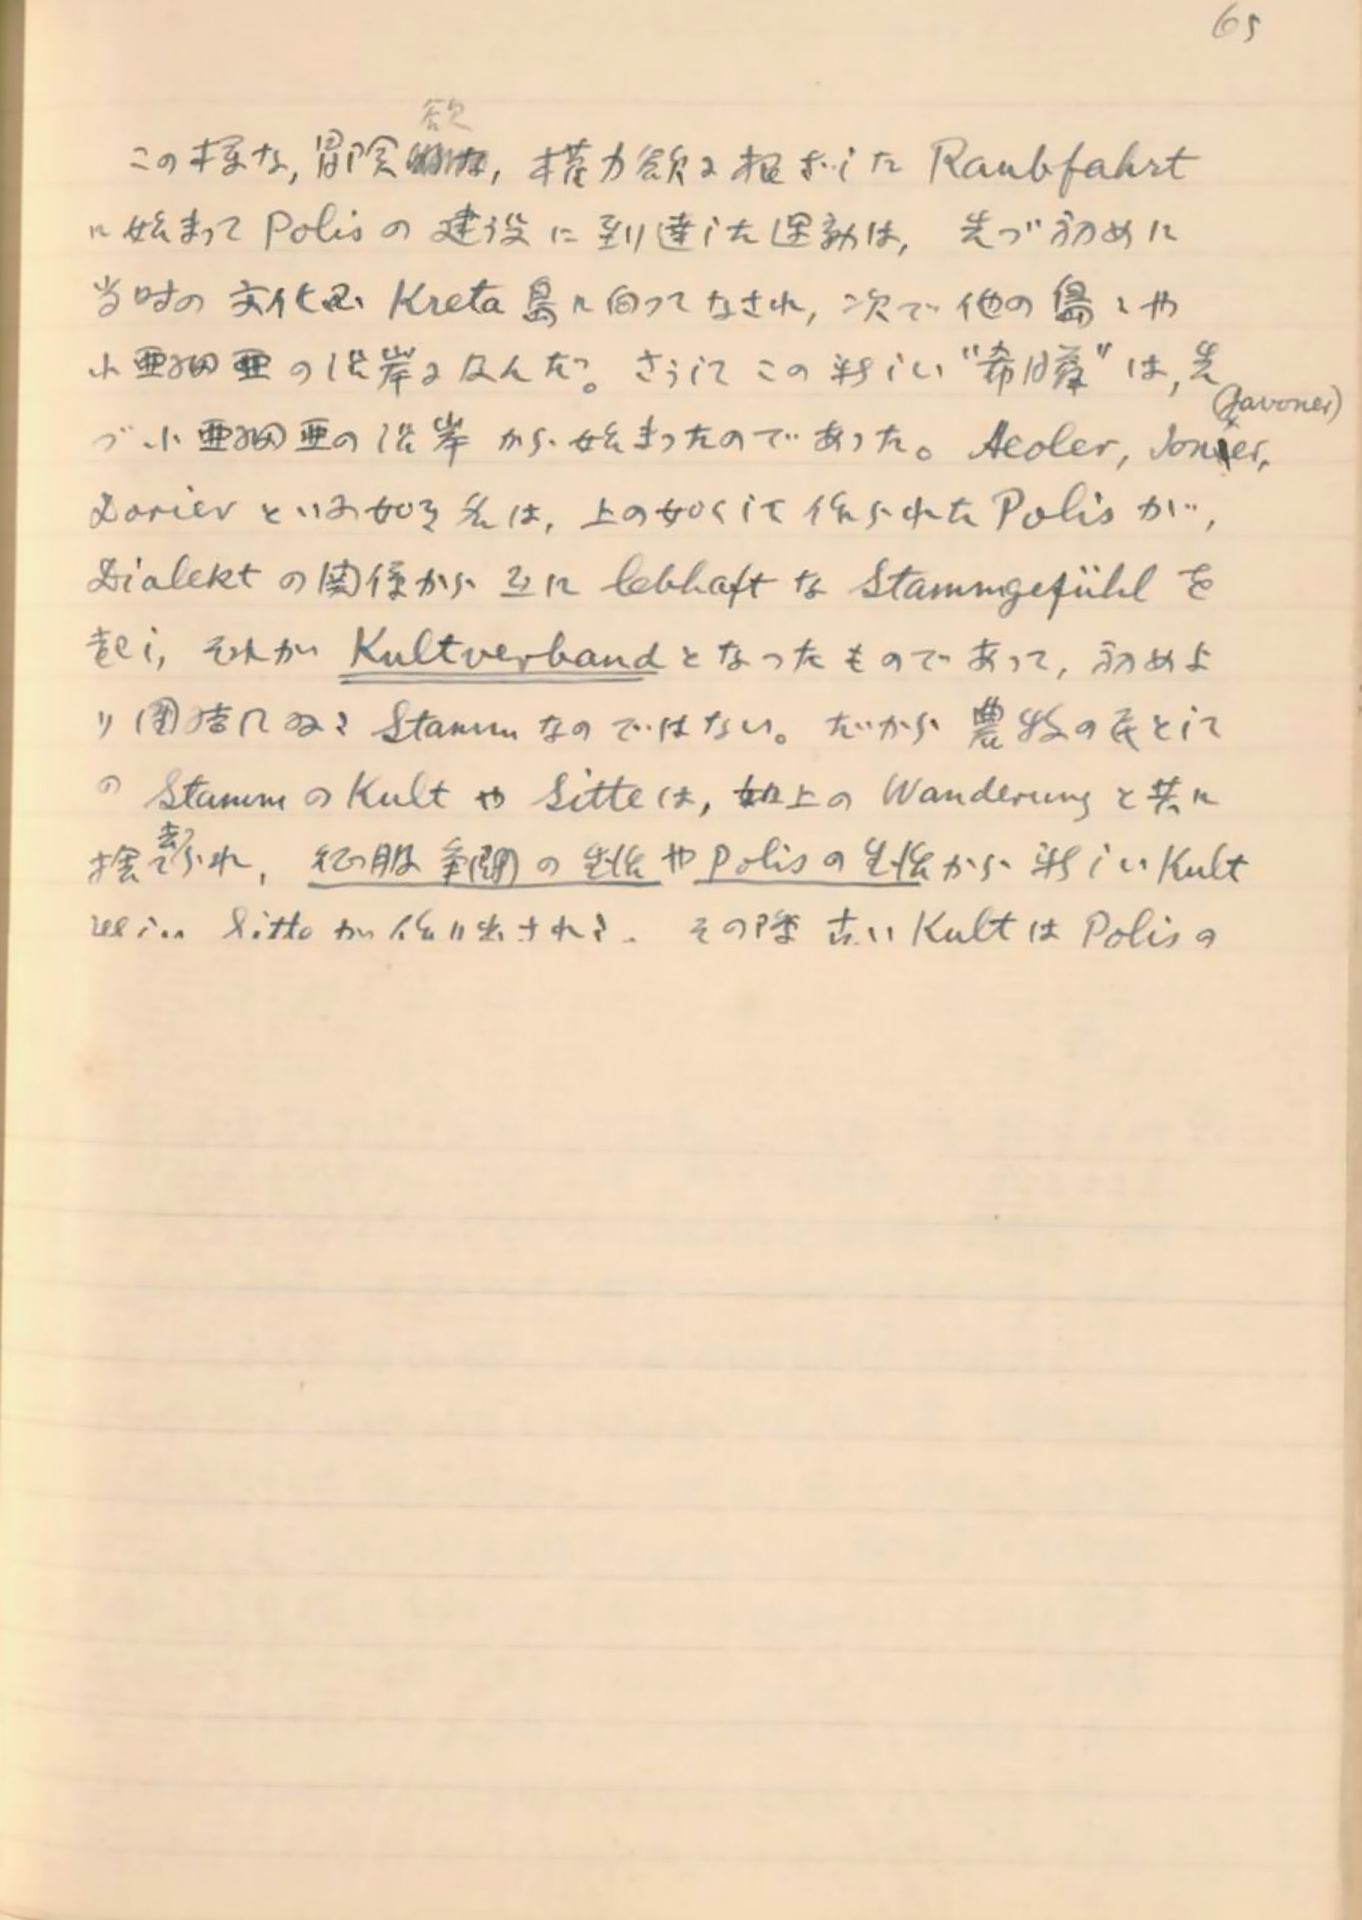 65
この様な, 冒険欲, 権力欲に根ざした Raubfahrt
に始まって Polis の 建設 に 到達した運動は, 先づ初めに
当時の 文化国 Kreta 島に向ってなされ, 次で他の島々や
小亜細亜の沿岸に及んだ。さうしてこの新しい "希臘" は, 先
づ小亜細亜の沿岸から始まったのであった。Aeoler, Jonier, (Javoner)
Dorier といふ如き名は, 上の如くして作られた Polis が,
Dialekt の関係から互に lebhaft な Stammgefühl を
起し, それが Kultverband となったものであって, 初めよ
り団結せる Stamm なのではない。だから農牧の民として
の Stamm の Kult や Sitte は, 如上の Wanderung と共に
捨て去られ, 征服争闘の生活や Polis の生活から新しい Kult
Sitte が作り出される. その際古い Kult は Polis の